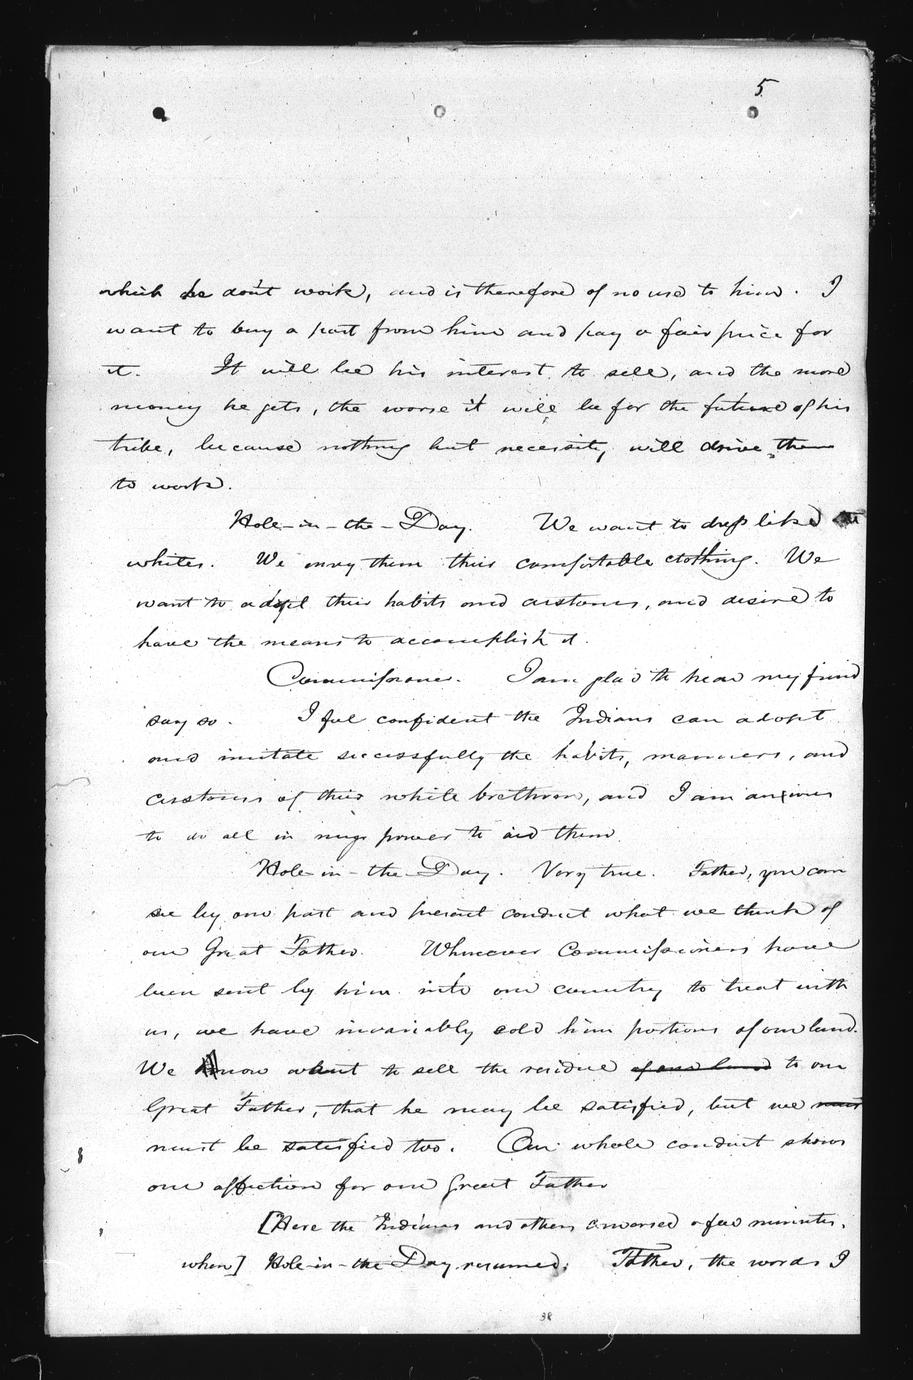 5
which he don't work, and is therefore of no use to him. I
want to buy a part from him and pay a fair price for
it. It will be his interest to sell, and the more
money he gets, the worse it will be for the future of his
tribe, because nothing but necessity will drive them
to work.
Hole-in-the-Day. We want to dress like
whites. We envy them their comfortable clothing. We
want to adopt their habits and customs, and desire to
have the means to accomplish it.
Commissioner. I am glad to hear my friend
say so. I feel confident the Indians can adopt
and imitate successfully the habits, manners, and
customs of their white brethren, and I am anxious
to do all in my power to aid them
Hole-in-the-Day. Very true. Father, you can
see by our past and present conduct what we think of
our Great Father. Whenever Commissioners have
been sent by him into our country to treat with
us, we have invariably sold him portions of our land.
We now want to sell the residue of our land to our
Great Father, that he may be satisfied, but we must
must be satisfied too. Our whole conduct shows
our affection for our Great Father
[Here the Indians and others conversed a few minutes,
when] Hole-in-the-Day resumed: Father, the words I
38